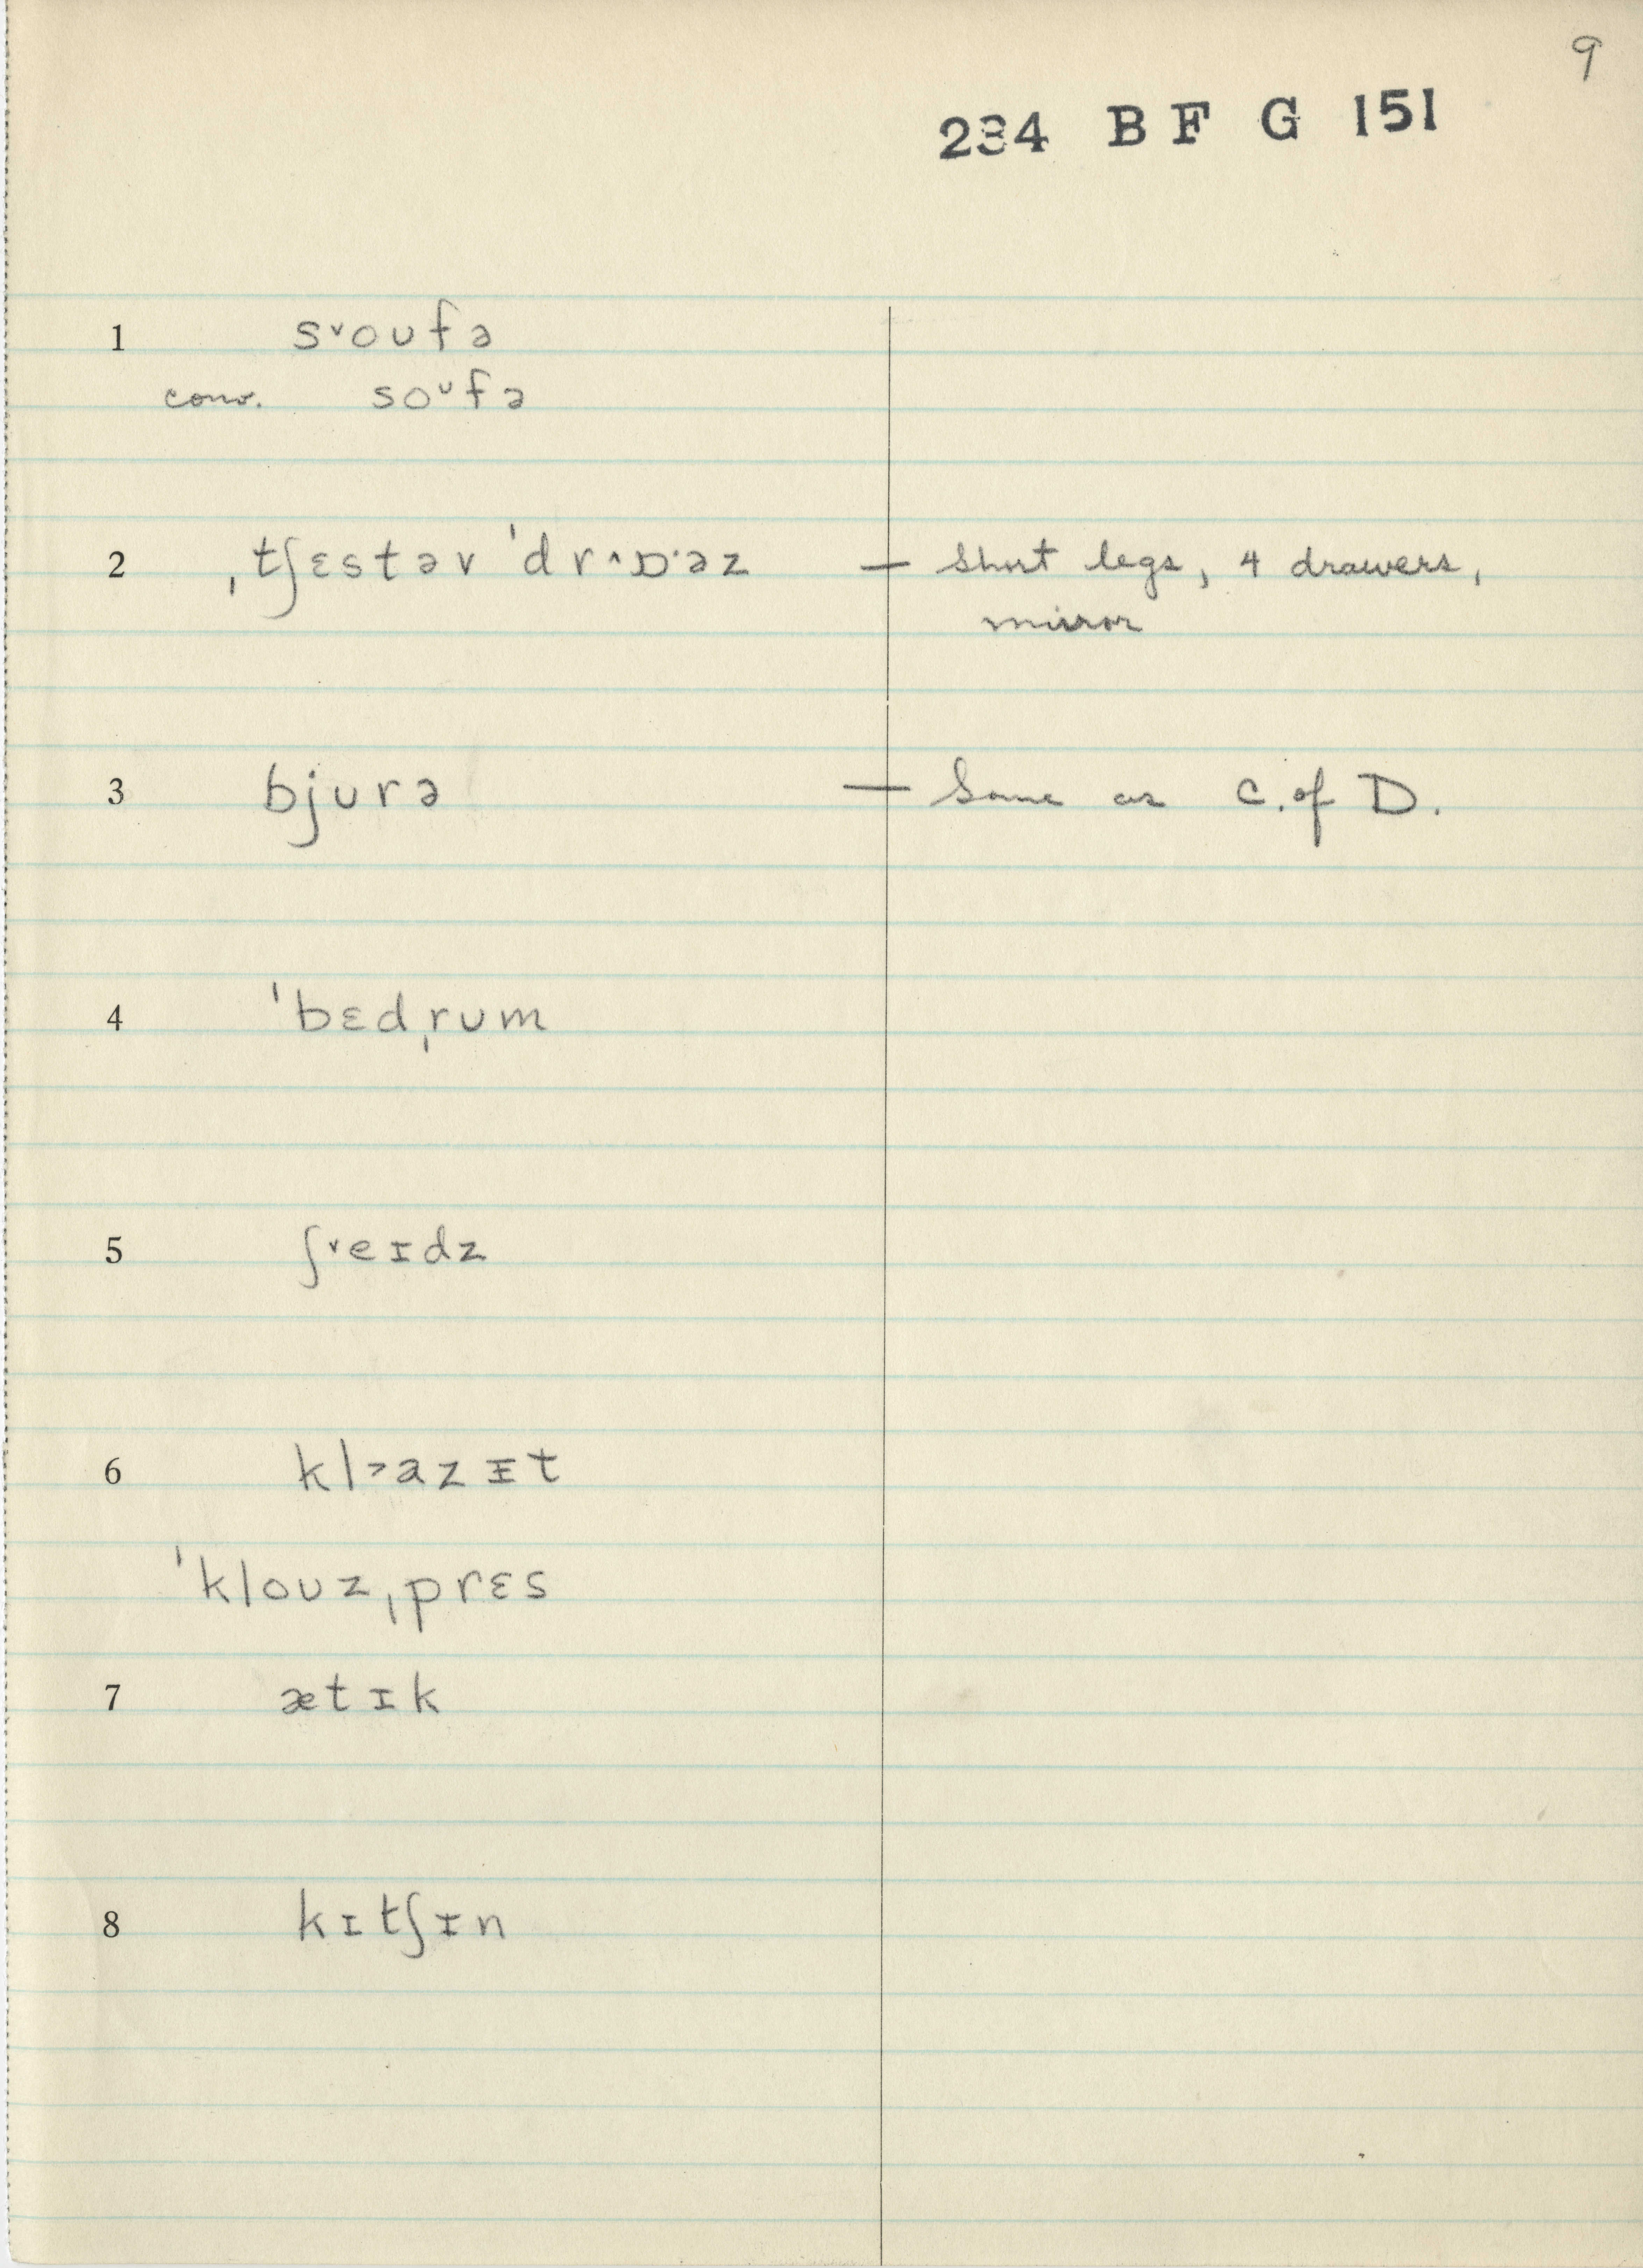 9
234 B F G 151
1 s˅oʊfə
conv. soᶷfə
2 ˌtʃɛstəv ˈdr˄ɒ·əz — short legs, 4 drawers,
mirror
3 bjurə — Same as C. of D.
4 ˈbɛdˌrum
5 ʃ˅eɪdz
6 kl˃azɪt
ˈkloʊzˌprɛs
7 ætɪk
8 kɪtʃɪn